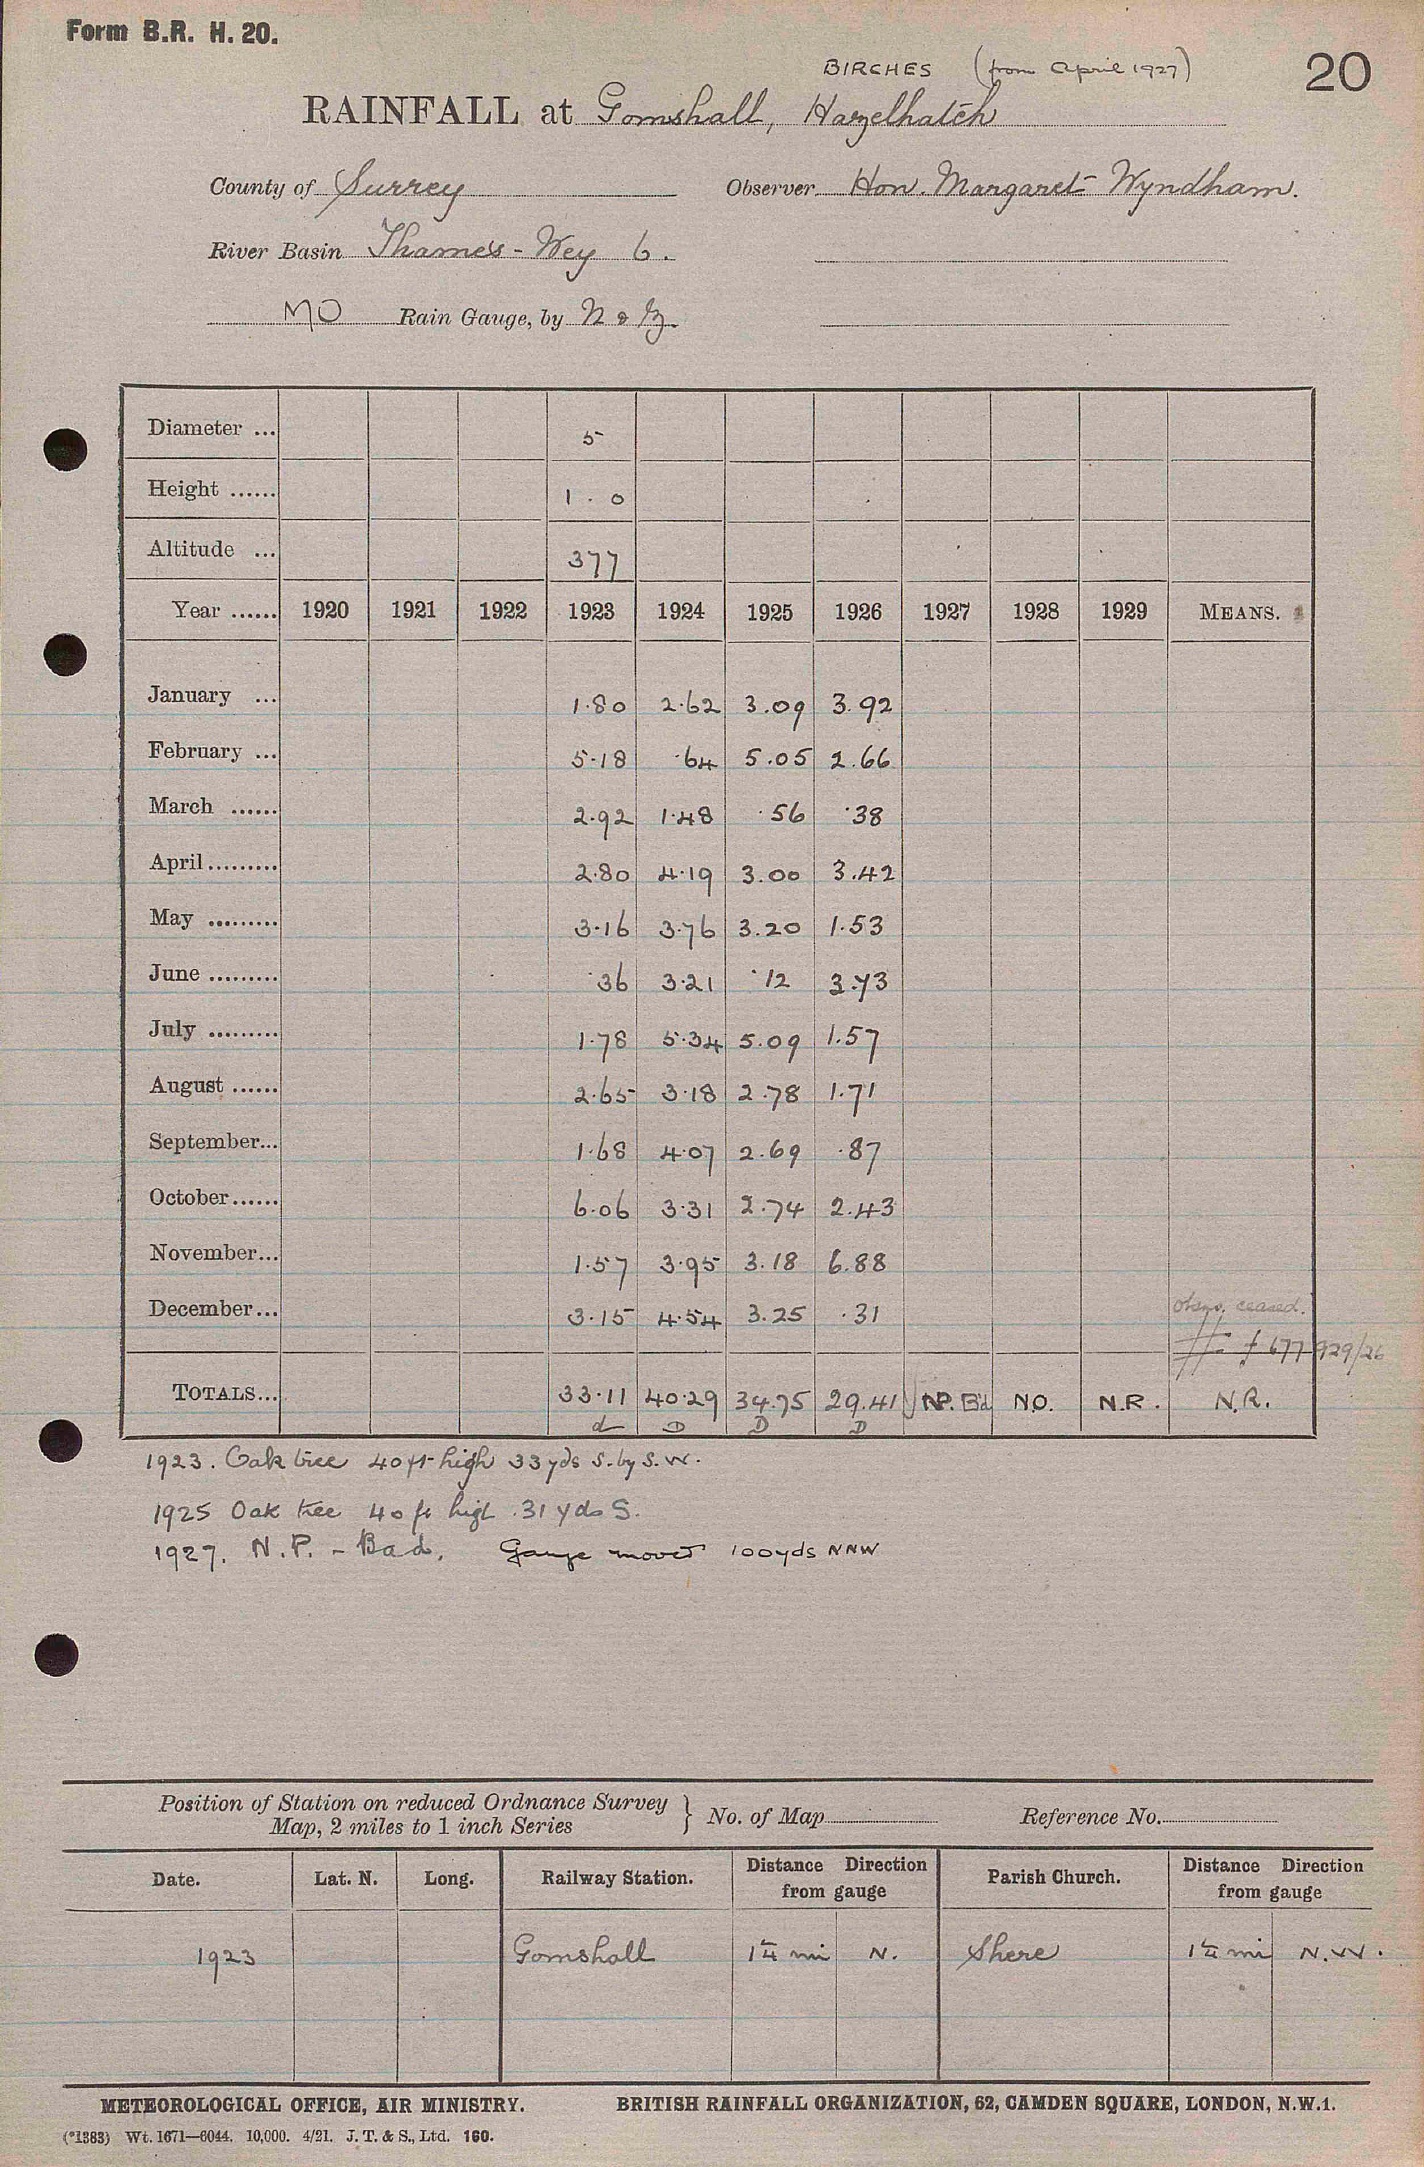 Form B.R. H. 20.
20
BIRCHES (from April 1927)
RAINFALL at Gomshall, Hazelhatch
County of Surrey Observer Hon. Margaret Wyndham.
River Basin Thames - Wey 6.
MO Rain Gauge, by N & Z
Diameter ... 5
Height ...... 1 . 0
Altitude ... 377
Year ...... 1920 1921 1922 1923 1924 1925 1926 1927 1928 1929 MEANS.
January ... 1.80 2.62 3.09 3.92
February ... 5.18 .64 5.05 2.66
March ...... 2.92 1.48 .56 .38
April ......... 2.80 4.19 3.00 3.42
May ......... 3.16 3.76 3.20 1.53
June ......... .36 3.21 .12 3.73
July ......... 1.78 5.34 5.09 1.57
August ...... 2.65 3.18 2.78 1.71
September... 1.68 4.07 2.69 .87
October...... 6.06 3.31 2.74 2.43
November... 1.57 3.95 3.18 6.88
December... 3.15 4.54 3.25 .31
obsns. ceased.
677929/26
TOTALS... 33.11 40.29 34.75 29.41 NP. Bd N.O. N.R. N.R.
d D D D
1923. Oak tree 40 ft high 33 yds S. by S.W.
1925 Oak tree 40 ft high 31 yds S.
1927. N.P. - Bad. Gauge moved 100yds NNW
Position of Station on reduced Ordnance Survey Map, 2 miles to 1 inch Series } No. of Map Reference No.
Date. Lat. N. Long. Railway Station. Distance Direction from gauge Parish Church. Distance Direction from gauge
1923 Gomshall 1¼ mi N. Shere 1¼ mi N.W.
METEOROLOGICAL OFFICE, AIR MINISTRY. BRITISH RAINFALL ORGANIZATION, 62, CAMDEN SQUARE, LONDON, N.W.1.
(*1383) Wt. 1671—6044. 10,000. 4/21. J. T. & S., Ltd. 160.